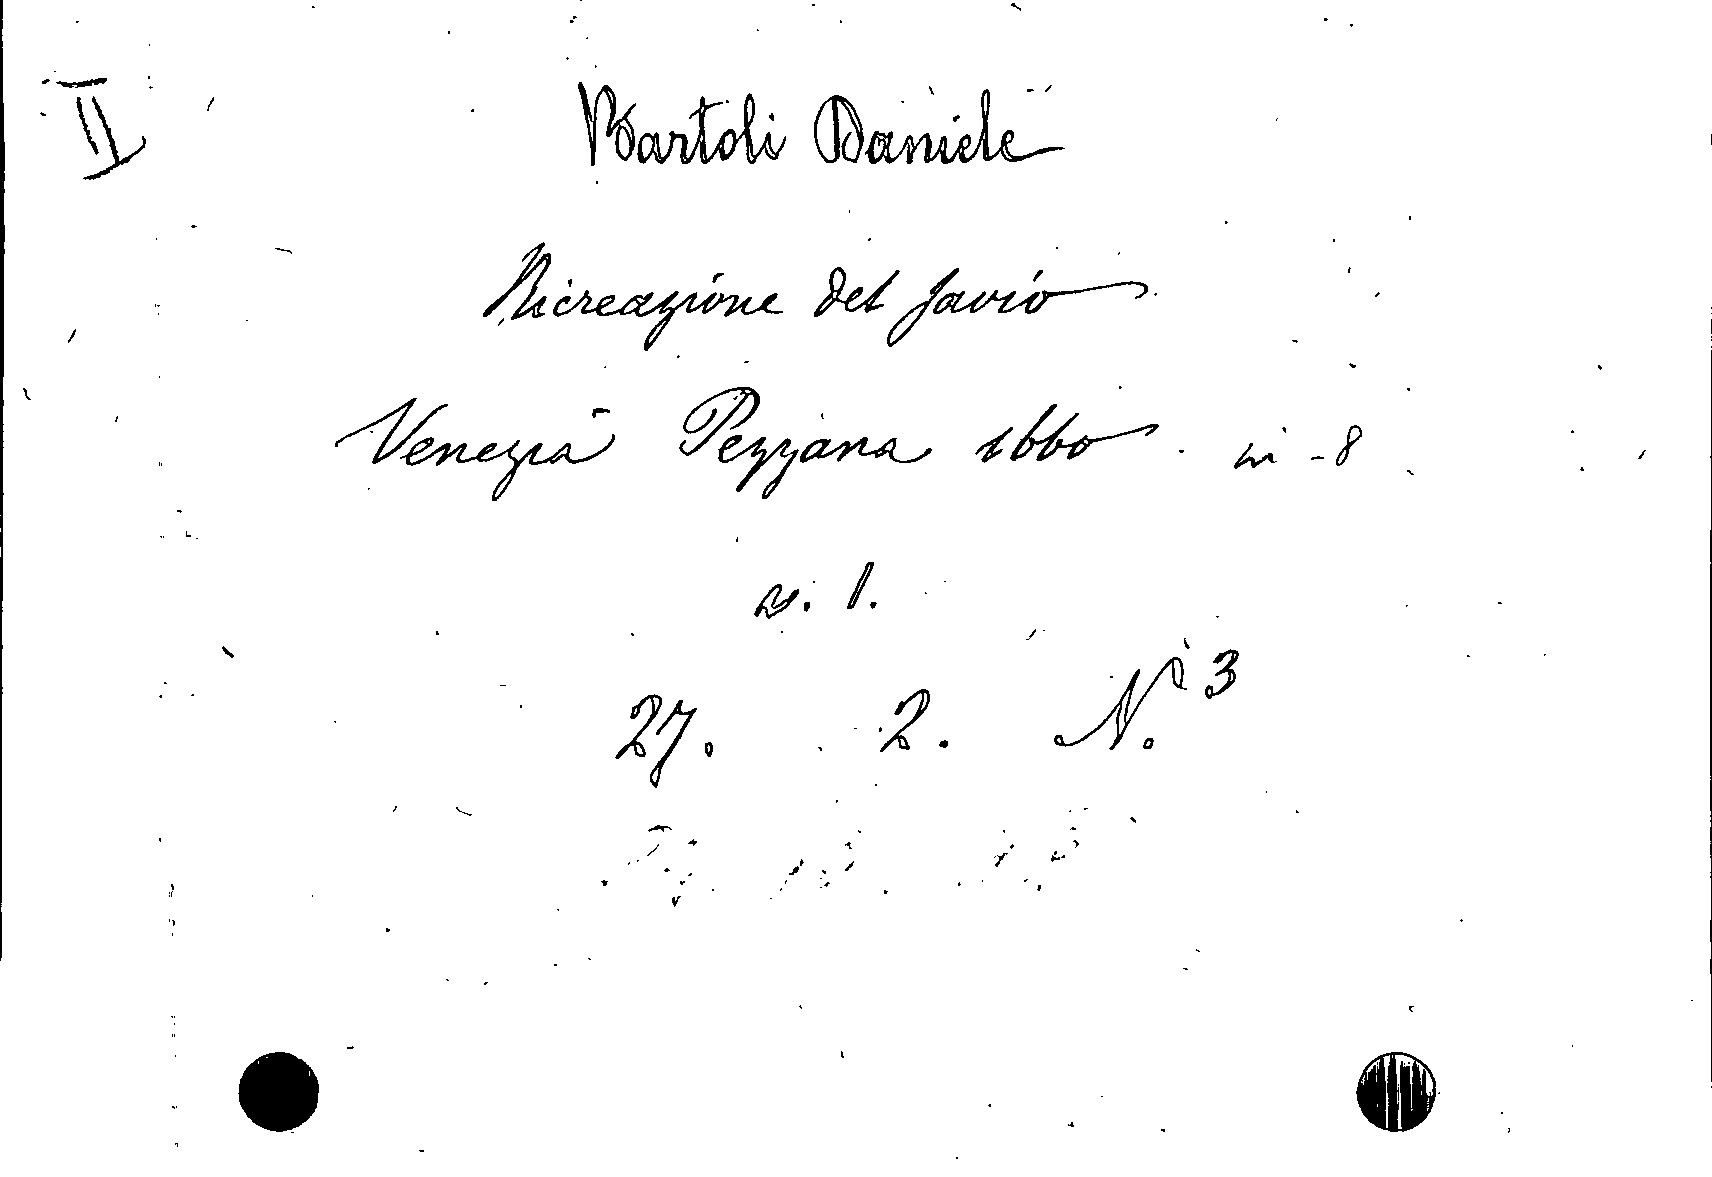 II
Bartoli Daniele
Ricreazione del Savio
Venezia Pezzana 1660 in-8
v. 1.
27. 2. N. 3